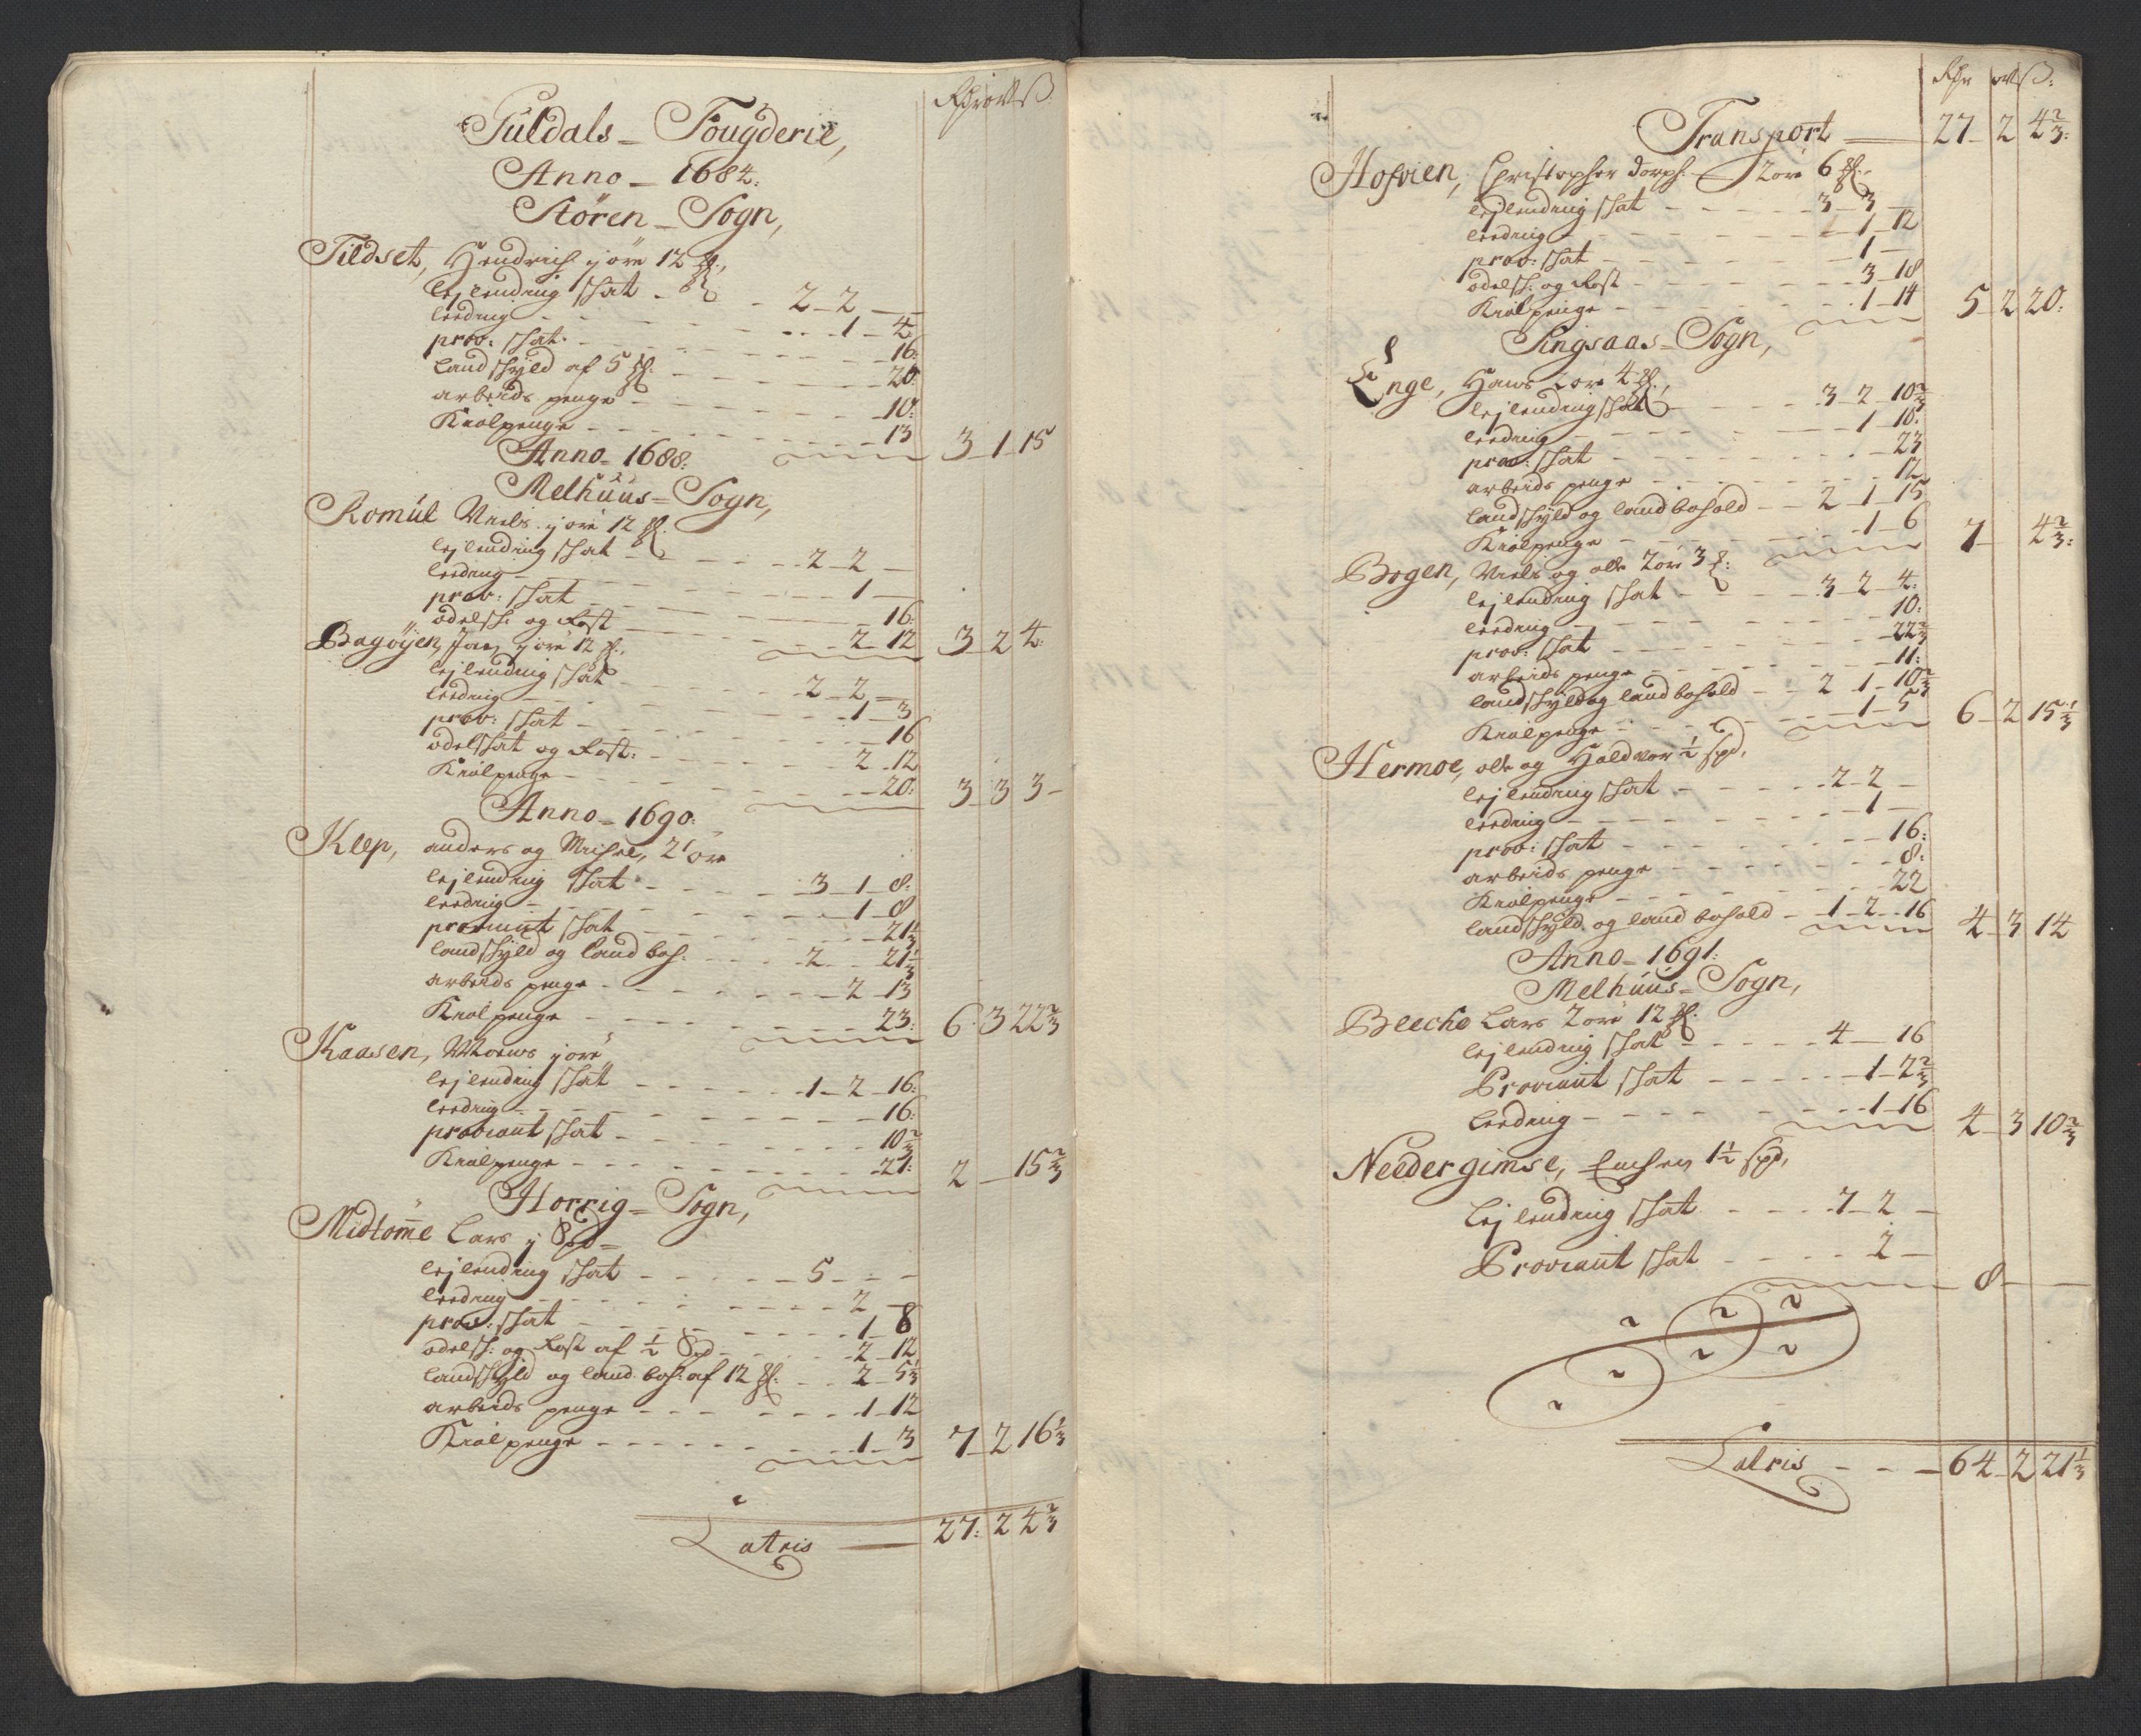 Rdr ort ß:
Guldals - Fougderie,
Anno - 1684:
Stören - Sogn,
Tildset, Hendrich j öre 12
lejlending skat - 2 - 2 -
leeding - 1 - 4
prov: skat - 16:
landskyld af 5 - 20:
arbeids penge - 10:
Kiölpenge - 13 3 - 1 - 15
Anno - 1688:
Melhuus - Sogn,
Romül Niels j öre 12
lejlending skat - 2 - 2 -
leeding - 1 -
prov: skat - 16:
odelsk: og Rost - 2 - 12 3 - 2 4:
Bagöyen, Jon j öre 12
lejlending skat - 2 - 2 -
leeding - 1 - 3
prov: skat - 16
odelskat og Rost: - 2 - 12
Kiölpenge - 20: 3 - 3 3 -
Anno - 1690:
Klep, anders og Michel, 2 öre
lejlending skat - 3 - 1 - 8:
leeding - 1 - 8
proviant skat - 21 1/3
landskyld og land boh: - 2 - 21 1/3
arbeids penge - 2 - 13
Kiöl penge - 23: 6 - 3 22 2/3
Kaasen, Mons j öre
lejlending skat - 1 - 2 - 16:
leeding - 16:
proviant skat - 10 2/3
Kiölpenge - 21: 2 - 15 2/3
Horrig - Sogn,
Midtome Lars j Spd
lejlending skat - 5 - -
leeding - 2 -
prov: skat - 1 - 8
odelsk: og Rost af 1/2 Spd - 2 - 12
landskyld og land boh: af 12 - 2 - 5 1/3
arbeids penge - 1 - 12
Kiöl penge - 1 - 3 7 - 2 16 1/3
Latris - 27: 2 4 2/3
Rdr ort ß:
Transport - 27 - 2 4 2/3:
Hofvien, Christopher 2 öre 6
lejlending skat - 3 - 3 -
leeding - 1 - 12
prov: skat - 1 -
odelsk: og Rost - 3 - 18
Kiölpenge - 1 - 14 5 - 2 20:
Singsaas - Sogn,
Enge, Hans 2 öre 4
lejlending skat - 3 - 2 - 10 2/3
leeding - 1 - 10:
prov: skat - 23
arbeids penge - 12
landskyld og land bohold - 2 - 1 - 15
Kiölpenge - 1 - 6 7 - 4 2/3:
Bogen, Niels og ole 2 öre 3
lejlending skat - 3 - 2 - 4:
leeding - 10:
prov: skat - 22 2/3
arbeids penge - 11:
landskyld og land bohold - 2 - 1 - 10 2/3
Kiölpenge - 1 - 5 6 - 2 15 1/3
Hermoe, ole og Haldvor 1/2 spd,
lejlending skat - 2 - 2 -
leeding - 1 -
prov: skat - 16:
arbeids penge - 8:
Kiölpenge - 22
landskyld og land bohold - 1 - 2 - 16 4 - 3 14
Anno - 1691:
Melhuus - Sogn,
Bleche Lars 2 öre 12
lejlending skat - 4 - 16
Proviant skat - 1 - 2 2/3
Leeding - 1 - 16 4 - 3 10 2/3
Needer gimse, 1 1/2 spd,
Lejlending skat - 7 - 2 -
Proviant skat - 2 -
8 -
Latris - 64 - 2 21 1/3